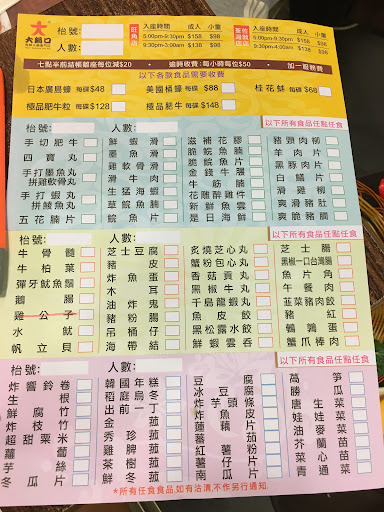 大鍋口
枱號：
人數：
旺角店
入座時間 成人 小童
5:00pm-9:30pm $158 $98
9:30pm-3:00am $138 $98
荃灣店 佐敦店
入座時間 成人 小童
6:00pm-9:30pm $158 $98
9:30pm-4:00am $138 $88
七點半前結帳離座每位減$20 ・ 逾時收費：每小時每位$50 ・ 加一服務費
以下各款食品需要收費
日本廣島蠔 每碟$48 美國桶蠔 每碟 $88 桂花蚌 每碟$68
極品肥牛粒 每碟$128 極品肥牛 每碟$148
枱號： 人數： 以下所有食品任點任食
手切肥牛 鮮魷魚 滋補花膠 豬頸肉柳
四寶丸 墨魚滑 脆鯇魚片 羊肉片
手打墨魚丸 雞軟骨滑 脆鯇魚片 黑豚肉片
拼雞軟骨丸 滑牛肉 金錢牛𦟌 白鱔片
手打蝦丸 生猛海蝦 牛筋腩 滑雞柳
拼鯪魚丸 草鯇魚片 花雕醉雞件 爽滑豬膶
五花腩片 脆鯇魚 是日海鮮 爽脆豬肚
枱號： 人數： 以下所有食品任點任食
牛骨髓 芝士豆腐 炙燒芝心丸 芝士腸
牛柏葉 豬皮 蟹粉包心丸 黑椒一口台灣腸
彈牙魷魚鬚 炸魚蛋 香菇貢丸 魚片角
鵝腸 木耳 黑椒牛丸 午餐肉
雞公子 油炸鬼 千島龍蝦丸 韮菜豬肉餃
水魷 豬肚 魚皮餃 豬紅
帆立貝 吊桶仔 黑松露水餃 鵪鶉蛋
海帶結 鮮蝦雲吞 蟹爪棒肉
枱號： 人數： 以下所有食品任點任食
炸響鈴卷 韓國年糕 豆腐
生根 稻庭烏冬 冰豆腐 勝瓜
鮮腐竹 出前一丁 炸芋頭條 唐生菜
炸枝竹 金菇 炸魚皮 娃娃菜
超甜粟米 秀珍菇 蓮藕片 油麥菜
蘿蔔 雞脾菇 蕃茄
芋絲 茶樹菇 紅薯粉
冬瓜片 鮮冬菇 薯仔片
南瓜片
*所有任食食品,如有沽清,不作另行通知.